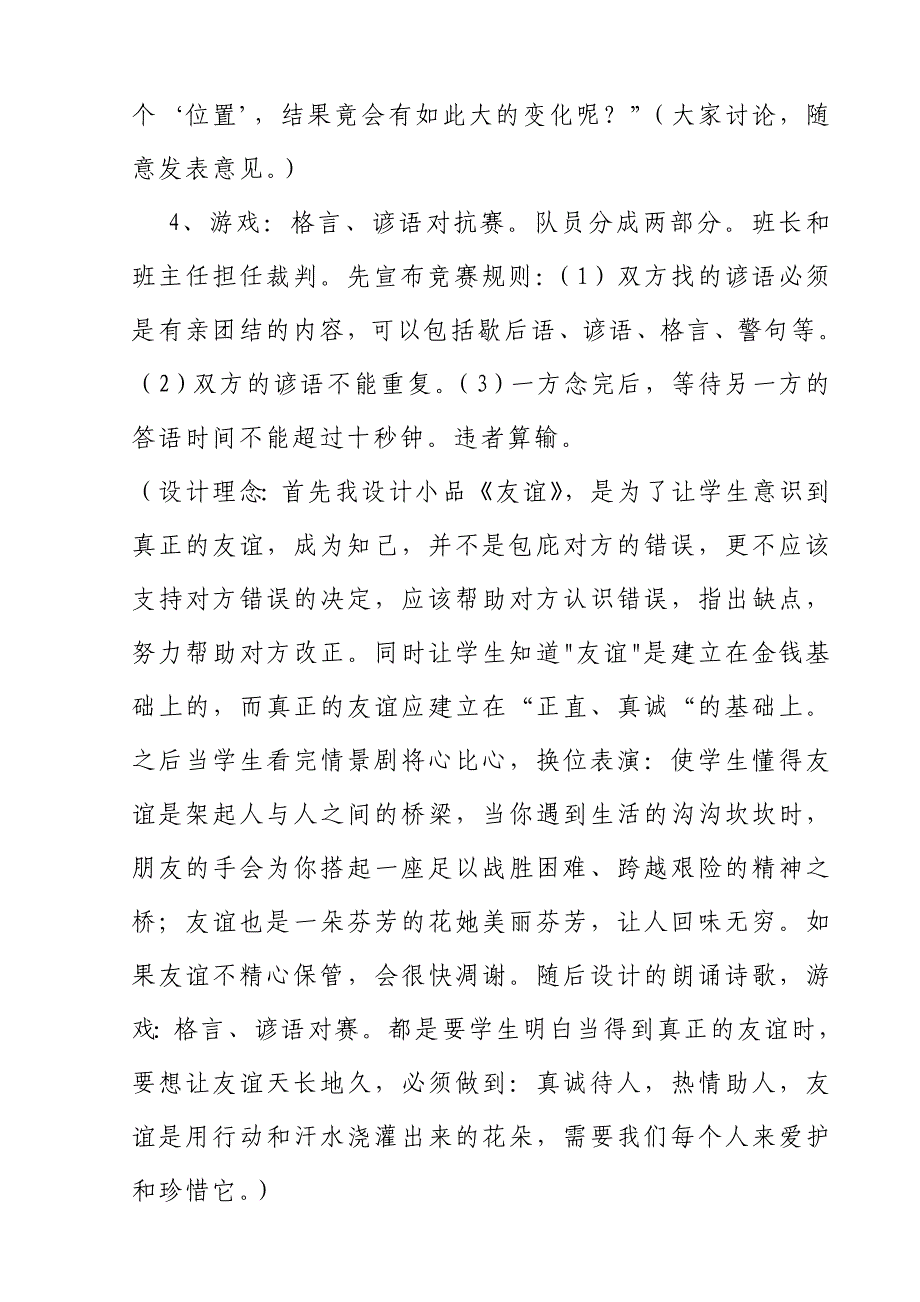 个‘位置’，结果竟会有如此大的变化呢？”（大家讨论，随
意发表意见。）
4、游戏：格言、谚语对抗赛。队员分成两部分。班长和
班主任担任裁判。先宣布竞赛规则：（1）双方找的谚语必须
是有亲团结的内容，可以包括歇后语、谚语、格言、警句等。
（2）双方的谚语不能重复。（3）一方念完后，等待另一方的
答语时间不能超过十秒钟。违者算输。
（设计理念：首先我设计小品《友谊》，是为了让学生意识到
真正的友谊，成为知己，并不是包庇对方的错误，更不应该
支持对方错误的决定，应该帮助对方认识错误，指出缺点，
努力帮助对方改正。同时让学生知道"友谊"是建立在金钱基
础上的，而真正的友谊应建立在“正直、真诚“的基础上。
之后当学生看完情景剧将心比心，换位表演：使学生懂得友
谊是架起人与人之间的桥梁，当你遇到生活的沟沟坎坎时，
朋友的手会为你搭起一座足以战胜困难、跨越艰险的精神之
桥；友谊也是一朵芬芳的花她美丽芬芳，让人回味无穷。如
果友谊不精心保管，会很快凋谢。随后设计的朗诵诗歌，游
戏：格言、谚语对赛。都是要学生明白当得到真正的友谊时，
要想让友谊天长地久，必须做到：真诚待人，热情助人，友
谊是用行动和汗水浇灌出来的花朵，需要我们每个人来爱护
和珍惜它。）